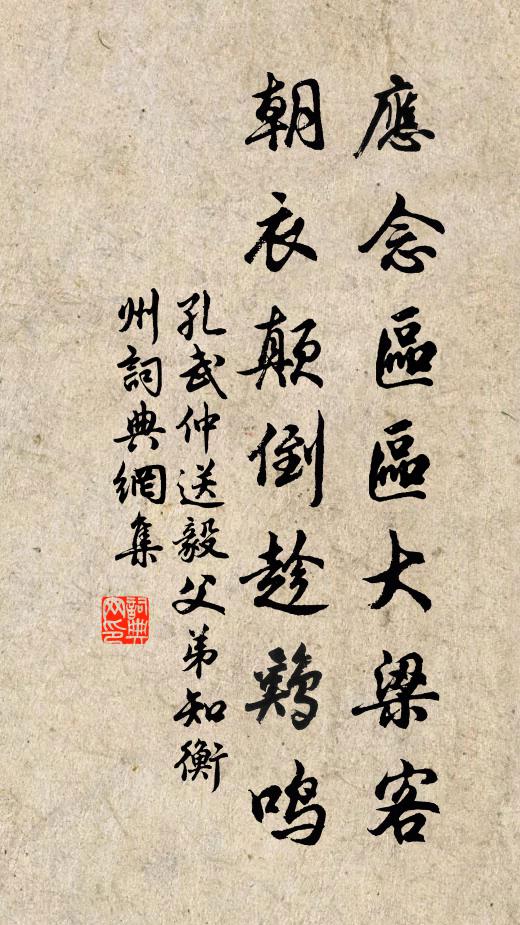 應念區區大梁客
朝衣顛倒趁鷄鳴
孔武仲送毅父弟知衡
州詞典網集
詞典網印